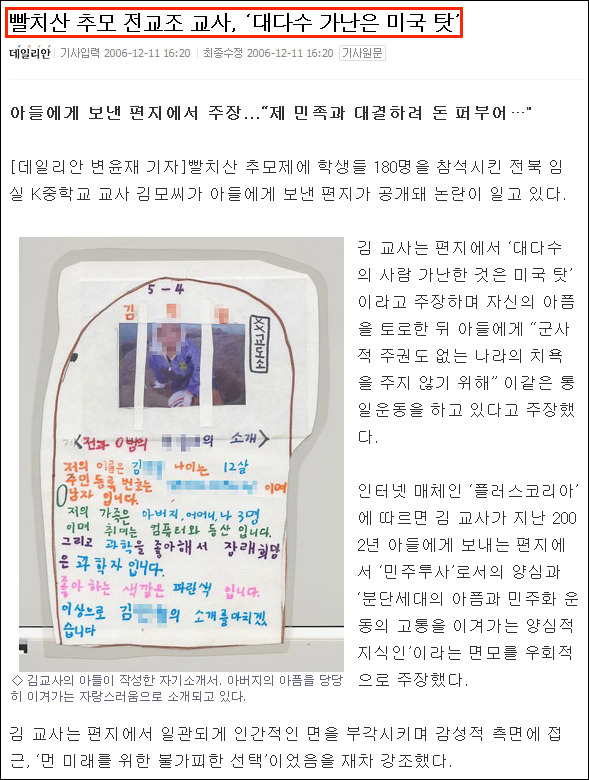 빨치산 추모 전교조 교사, ‘대다수 가난은 미국 탓’
데일리안 | 기사입력 2006-12-11 16:20 | 최종수정 2006-12-11 16:20 기사원문
아들에게 보낸 편지에서 주장...“제 민족과 대결하려 돈 퍼부어…"
[데일리안 변윤재 기자]빨치산 추모제에 학생들 180명을 참석시킨 전북 임
실 K중학교 교사 김모씨가 아들에게 보낸 편지가 공개돼 논란이 일고 있다.
5-4
김
XX교도소
<전과 0범의 의 소개>
저의 이름은 김 나이는 12살
주민등록 번호는 이며
남자 입니다.
저의 가족은 아버지, 어머니, 나 3명
이며 취미는 컴퓨터와 등산 입니다.
그리고 과학을 좋아해서 장래희망
은 과학자 입니다.
좋아 하는 색깔은 파란색 입니다.
이상으로 김 의 소개를 마치겠
습니다
◇ 김교사의 아들이 작성한 자기소개서. 아버지의 아픔을 당당
히 이겨가는 자랑스러움으로 소개되고 있다.
김 교사는 편지에서 ‘대다수
의 사람 가난한 것은 미국 탓’
이라고 주장하며 자신의 아픔
을 토로한 뒤 아들에게 “군사
적 주권도 없는 나라의 치욕
을 주지 않기 위해” 이같은 통
일운동을 하고 있다고 주장했
다.
인터넷 매체인 ‘플러스코리아’
에 따르면 김 교사가 지난 200
2년 아들에게 보내는 편지에
서 ‘민주투사’로서의 양심과
‘분단세대의 아픔과 민주화 운
동의 고통을 이겨가는 양심적
지식인’이라는 면모를 우회적
으로 주장했다.
김 교사는 편지에서 일관되게 인간적인 면을 부각시키며 감성적 측면에 접
근, ‘먼 미래를 위한 불가피한 선택’이었음을 재차 강조했다.